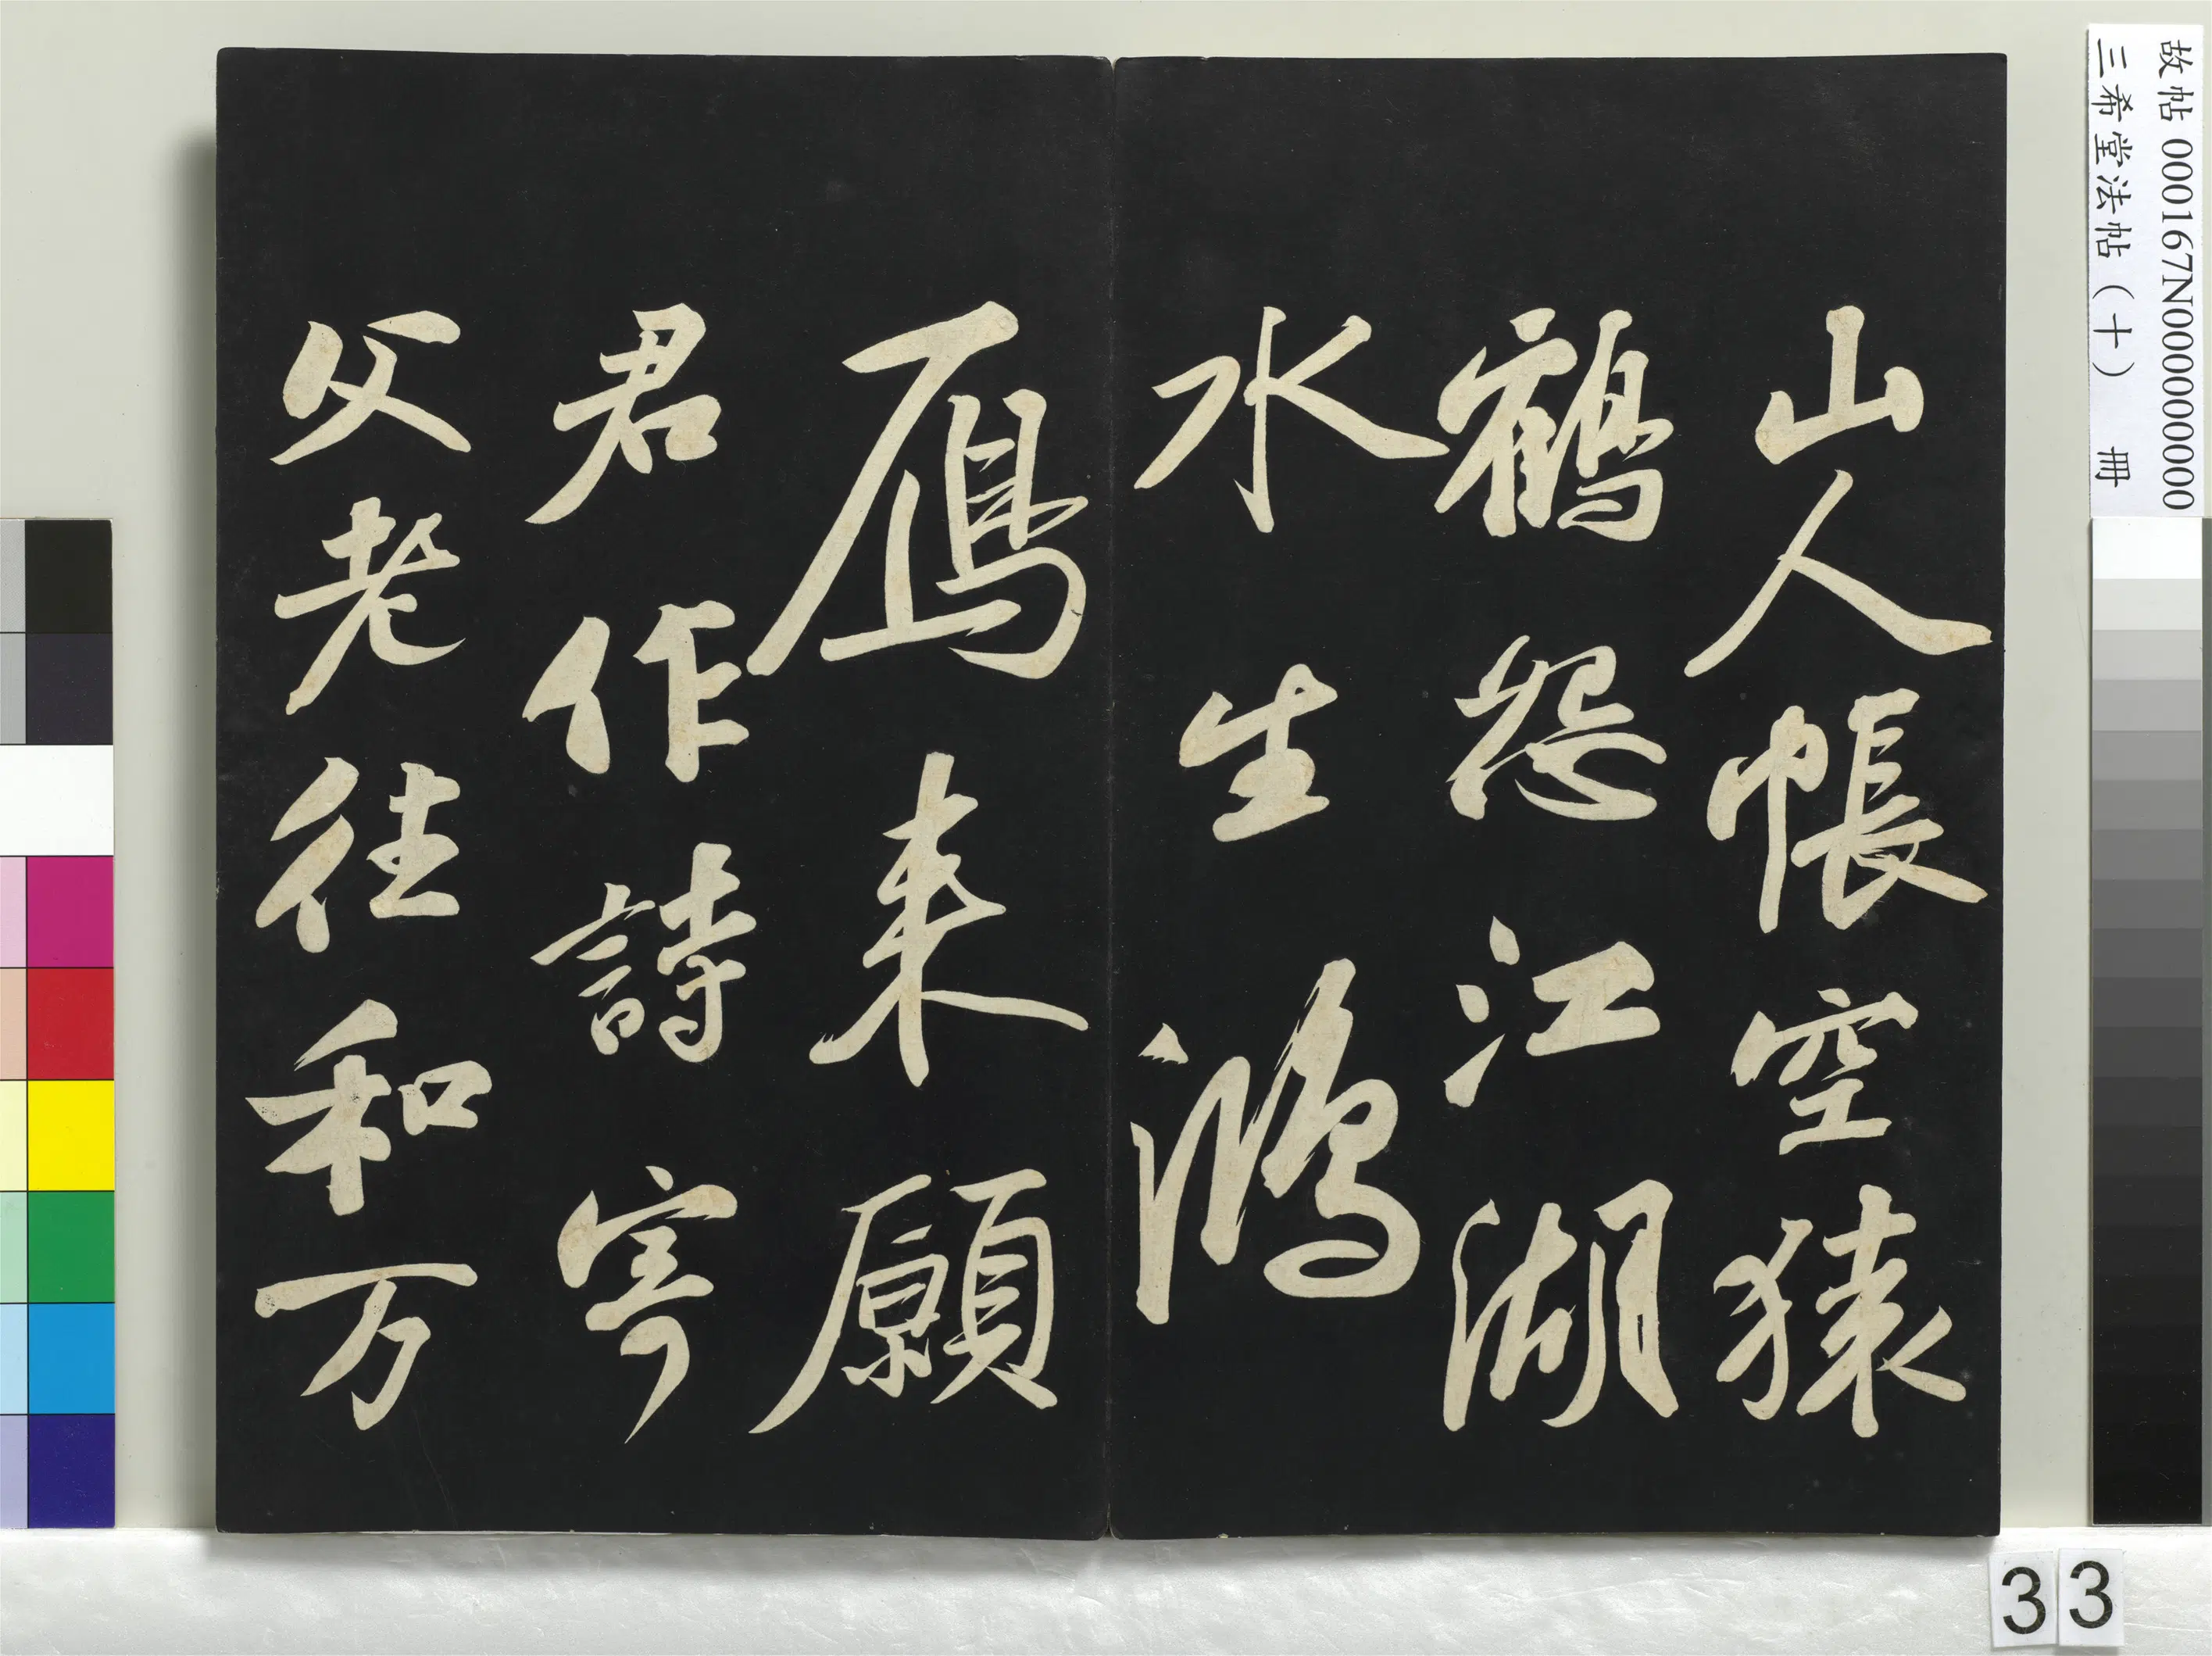 故帖 000167N000000000
三希堂法帖（十） 冊
山人帳空猿
鶴怨江湖
水生鴻
鴈来願
君作詩寄
父老往和万
33